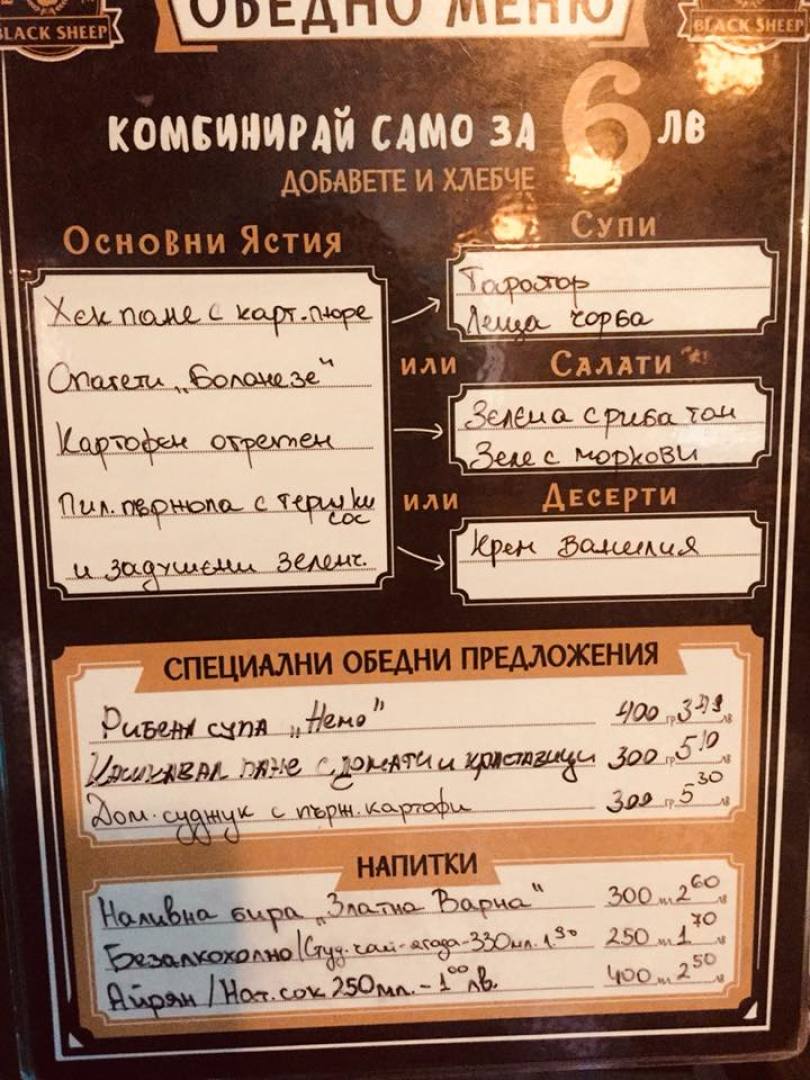 ОБЕДНО МЕНЮ
BLACK SHEEP
BLACK SHEEP
КОМБИНИРАЙ САМО ЗА 6 ЛВ
ДОБАВЕТЕ И ХЛЕБЧЕ
Основни Ястия
Хек пане с карт. пюре
Спагети „Болонезе“
Картофен огретен
Пил. пържола с терияки
сос
и задушени зеленч.
Супи
Таратор
Леща чорба
или
Салати
Зелена с риба тон
Зеле с моркови
или
Десерти
Крем ванилия
СПЕЦИАЛНИ ОБЕДНИ ПРЕДЛОЖЕНИЯ
Рибена супа „Немо“ 400 гр 3 лв
Кашкавал пане с домати и краставици 300 гр 5 10 лв
Дом. суджук с пърж. картофи 300 гр 5 30 лв
НАПИТКИ
Наливна бира „Златна Варна“ 300 мл 2 60 лв
Безалкохолно/Студ. чай-ягода-330мл. 1.90 250 мл 1 70 лв
Айрян /Нат. сок 250мл. - 1 00 лв. 400 мл 2 50 лв